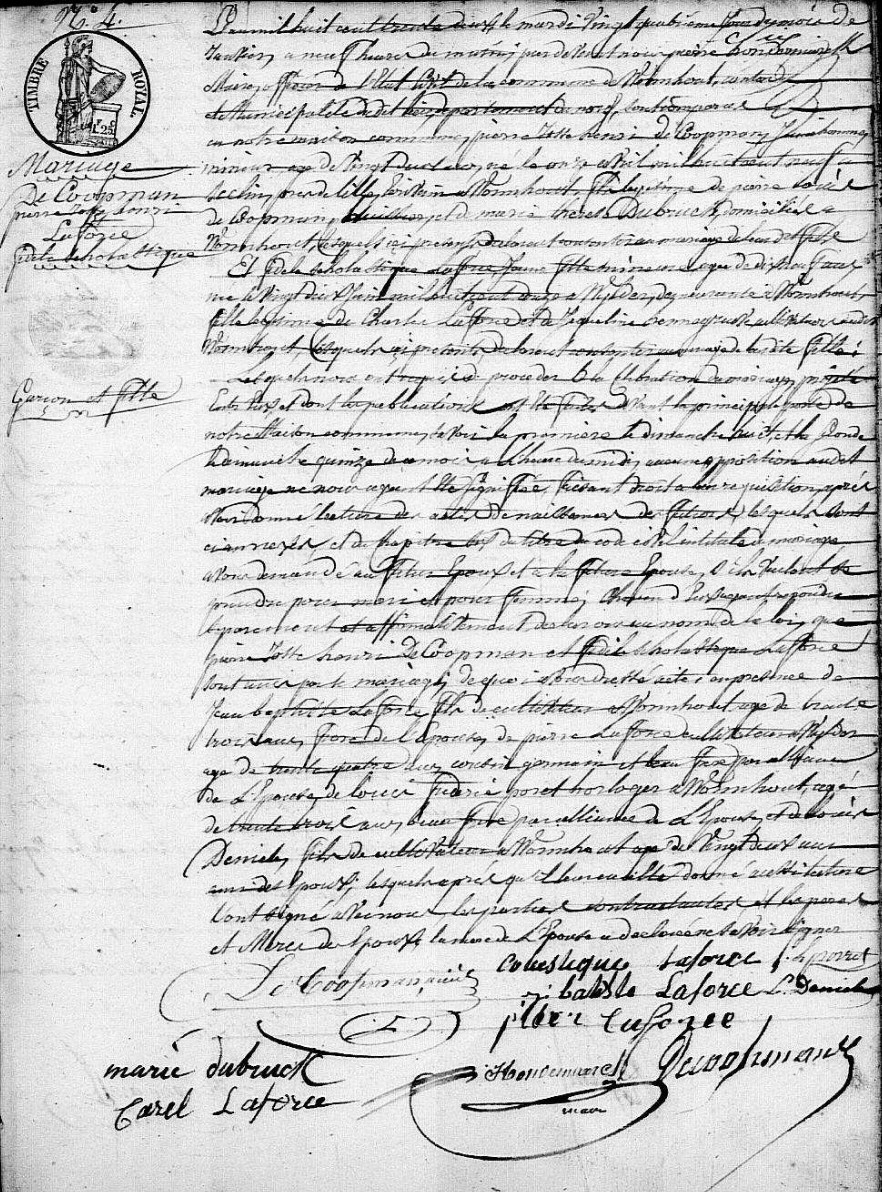 N.° 4.
TIMBRE ROYAL
1F 25
Mariage
De Coopman
pierre Joste henri
&
Laforce
fidele scholastique
Garcon et fille
L'an mil huit cent trente deux, le mardi vingt quatrieme jour du mois de
Janvier, a neuf heures du matin, par devant nous pierre
Maire, officier de l'Etat Civil de la commune de Wormhout, canton
et Municipalité dudit departement du nord, sont comparus
en notre maison commune, pierre Joste henri De Coopman, Jeune homme
mineur, agé de vingt deux ans, né le onze avril mil huit cent neuf a
Seclin, pres de lille, a Wormhout, fils legitime de pierre Louis
de Coopman, et de marie therese Dubruck, domiciliés a
Wormhout, lesquels ici presents declarant consentir au mariage de leur dit fils
Et fidele scholastique Laforce Jeune fille mineure, agée de dix neuf ans
née le vingt deux Juin mil huit cent onze a Wylder, demeurante a Wormhout,
fille legitime de Charles Laforce et de Jaqueline cultivateurs audit
Wormhout, lesquels ici presents declarant consentir au mariage de leur dite fille;
Lesquels nous ont requis de proceder a la celebration du mariage projeté
Entre Eux et dont les publications ont été faites devant la principale porte de
notre Maison commune, savoir la premiere le dimanche huit, et la seconde
le dimanche quinze de ce mois a l'heure de midi, aucune opposition audit
mariage ne nous ayant été signifiée, faisant droit a leur requisition, après
avoir donné lecture des actes de naissances des futurs, lesquels sont
ci annexés, et du chapitre six du titre du code civil intitulé du mariage
avons demandé au futur Epoux et a la future Epouse, s'ils veulent se
prendre pour mari et pour femme; chacun d'Eux ayant repondu
separement et affirmativement, declarons au nom de la loi, que
pierre Joste henri De Coopman et fidele scholastique Laforce
sont unis par le mariage; de quoi avons dressé acte en presence de
Jean baptiste Laforce fils de cultivateur a Wormhout, agé de trente
trois ans, frere de l'Epouse, de pierre Laforce cultivateur a Wylder
agé de trente quatre ans, cousin germain et beau frere par alliance
de L'Epouse, de louis porret horloger a Wormhout, agé
de trente trois ans, beau frere par alliance de L'Epouse, et de Louis
Deniele, fils de cultivateur a Wormhout agé de vingt deux ans
ami des Epoux; lesquels après qu'il leur en a été donné aussi lecture
l'ont signé avec nous les parties contractantes et les peres
et Meres des Epoux, la mere de L'Epouse a declaré ne savoir signer
De Coopman pierre
colastique Laforce L porret
j. batiste Laforce L. Deniele
piter Laforce
marie dubruck
Carel Laforce
maire
Decoopman